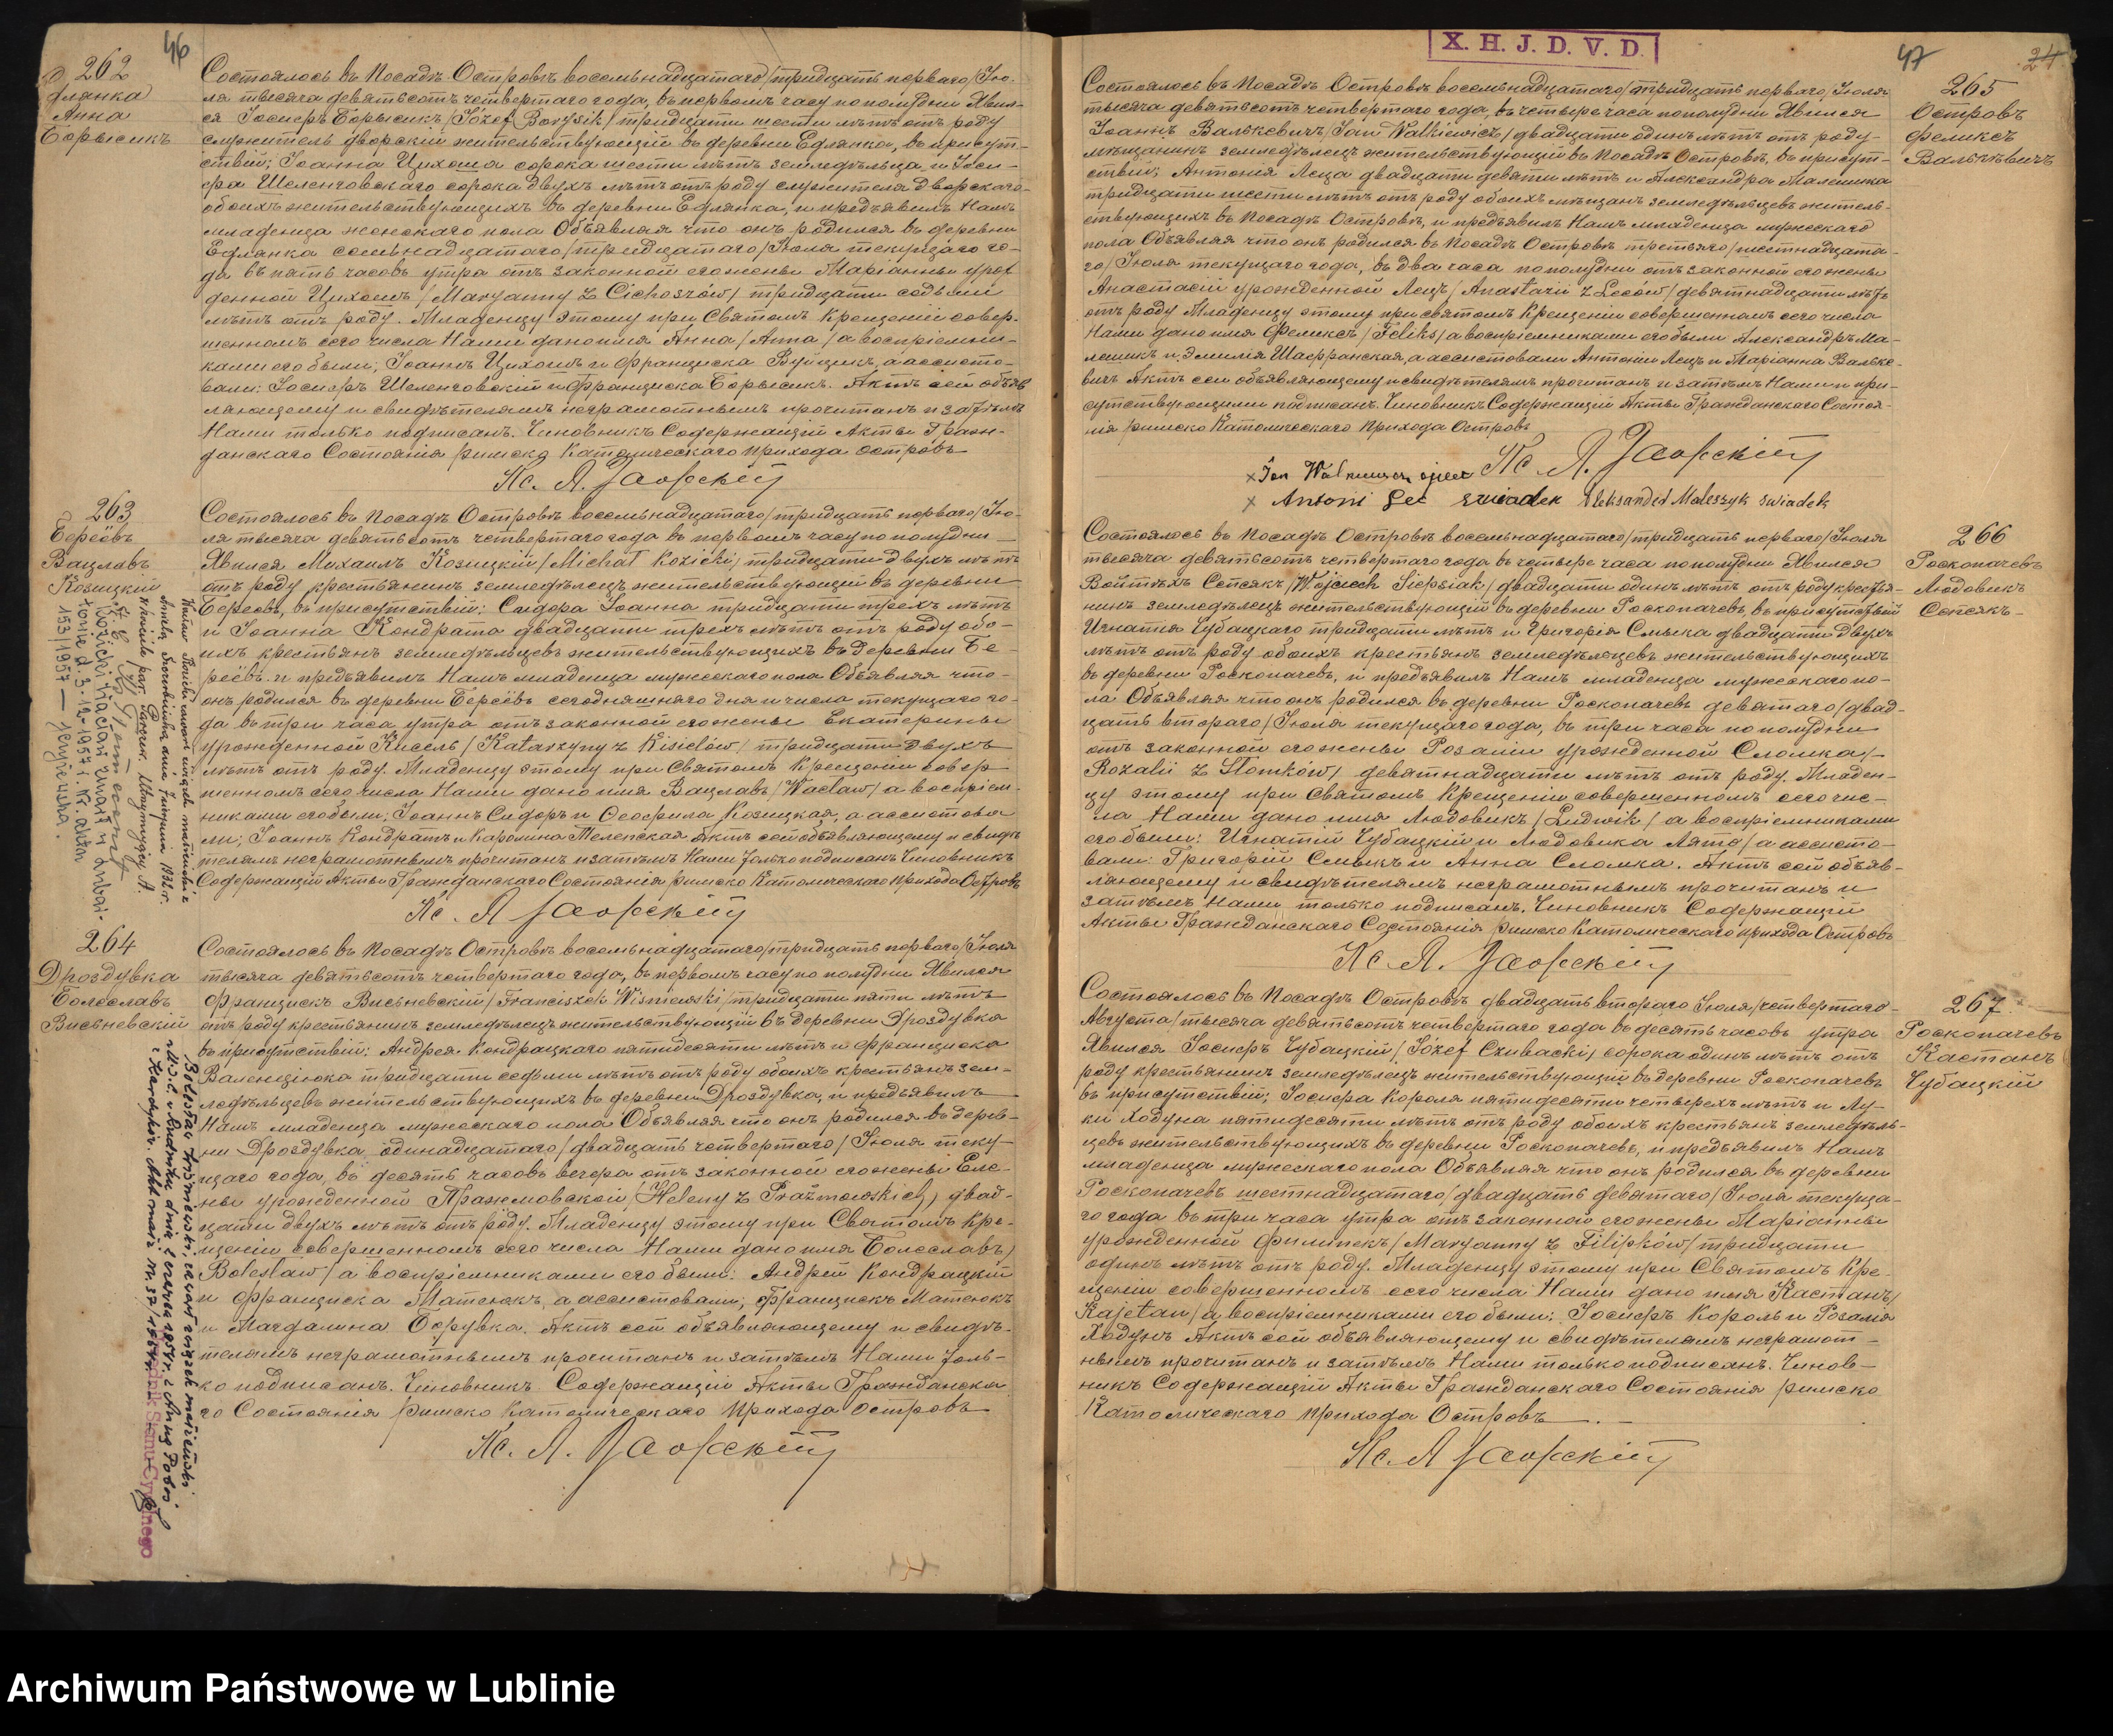 46
262
Едлянка
Анна
Борысикъ
Состоялось въ Посадѣ Островѣ восемьнадцатаго/тридцать перваго/Iю-
ля тысяча девятьсотъ четвертаго года, въ первомъ часу по полудни Явил-
ся Iосифъ Борысикъ /Józef Borysik/ тридцати шести лѣтъ отъ роду
служитель дворскiй жительствующiй въ деревни Едлянка, въ присут-
ствiи; Iоанна Цихоша сорока шести лѣтъ земледѣльца, и Iоси-
фа Шеленговскаго сорока двухъ лѣтъ отъ роду служителя дворскаго
обоихъ жительствующихъ въ деревни Едлянка, и предъявилъ Намъ
младенца женскаго пола Объявляя что онъ родился въ деревни
Едлянка семьнадцатаго/тридцатаго/Iюля текущаго го-
да въ пять часовъ утра отъ законной его жены Марiанны урож
денной Цихошъ /Maryanny z Cichoszów/ тридцати седьми
лѣтъ отъ роду. Младенцу этому при Святомъ Крещенiи совер-
шенномъ сего числа Нами дано имя Анна /Anna/ а воспрiемни-
ками его были; Iоаннъ Цихошъ и Францишка Вуйцикъ, а ассисто-
вали: Iосифъ Шеленговскiй и Францишка Борысикъ. Актъ сей объяв
ляющему и свидѣтелямъ неграмотнымъ прочитанъ и затѣмъ
Нами только подписанъ. Чиновникъ Содержащiй Акты Граж-
данскаго Состоянiя римско Католическаго прихода Островъ
Кс. А. Яворскiй
263
Береёвъ
Вацлавъ
Козицкiй
Состоялось въ Посадѣ Островѣ восемьнадцатаго/тридцать перваго/Iю-
ля тысяча девятьсотъ четвертаго года въ первомъ часу по полудни
Явился Михаилъ Козицкiй /Michał Kozicki/ тридцати двухъ лѣтъ
отъ роду крестьянинъ земледѣлецъ жительствующiй въ деревни
Береёвъ, въ присутствiи: Сидора Iоанна тридцати трехъ лѣтъ
и Iоанна Кондрата двадцати трехъ лѣтъ отъ роду обо-
ихъ крестьянъ земледѣльцевъ жительствующихъ въ деревни Бе-
реёвъ. и предъявилъ Намъ младенца мужескаго пола Объявляя что
онъ родился въ деревни Береёвъ сегодняшняго дня и числа текущаго го-
да въ три часа утра отъ законной его жены Екатерины
урожденной Кисель /Katarzyny z Kisielów/ тридцати двухъ
лѣтъ отъ роду. Младенцу этому при Святомъ Крещенiи совер
шенномъ сего числа Нами дано имя Вацлавъ /Wacław/ а воспрiем-
никами его были; Iоаннъ Сидоръ и Феофила Козицкая, а ассистова
ли; Iоаннъ Кондратъ и Каролина Теленская Актъ сей объявляющему и свидѣ
телямъ неграмотнымъ прочитанъ и затѣмъ Нами только подписанъ Чиновникъ
Содержащiй Акты Гражданскаго Состоянiя римско Католическаго прихода Островъ
Кс. А Яворскiй
Kozicki Wacław zmarł w Lubar-
towie d. 3-12-1957 r. Nr. aktu
153/1957
264
Дроздувка
Болеславъ
Висьневскiй
Состоялось въ Посадѣ Островѣ восемьнадцатаго/тридцать перваго/Iюля
тысяча девятьсотъ четвертаго года, въ первомъ часу по полудни Явился
Францискъ Висьневскiй /Franciszek Wiśniewski/ тридцати пяти лѣтъ
отъ роду крестьянинъ земледѣлецъ жительствующiй въ деревни Дроздувка
въ присутствiи; Андрея Кондрацкаго пятидесяти лѣтъ и Франциска
Валенцiюка тридцати седьми лѣтъ отъ роду обоихъ крестьянъ зем-
ледѣльцевъ жительствующихъ въ деревни Дроздувка, и предъявилъ
Намъ младенца мужескаго пола Объявляя что онъ родился въ дерев-
ни Дроздувка одинадцатаго/двадцать четвертаго/Iюля теку
щаго года, въ десять часовъ вечера отъ законной его жены Еле-
ны урожденной Пражмовской /Heleny z Prażmowskich/ двад-
цати двухъ лѣтъ отъ роду. Младенцу этому при Святомъ Кре-
щенiи совершенномъ сего числа Нами дано имя Болеславъ/
Bolesław/ а воспрiемниками его были: Андрей Кондрацкiй
и Францишка Матеюкъ, а ассистовали; Францискъ Матеюкъ
и Магдалина Оффувка. Актъ сей объявляющему и свидѣ-
телямъ неграмотнымъ прочитанъ и затѣмъ Нами толь-
ко подписанъ. Чиновникъ Содержащiй Акты Гражданска
го Состоянiя римско Католическаго прихода Островъ
Кс. А. Яворскiй
Bolesław Wiśniewski zawarł związek małżeński
Urzędnik Stanu Cywilnego
X. H. J. D. V. D.
47
24
265
Островъ
Феликсъ
Валькѣвичъ
Состоялось въ Посадѣ Островѣ восемьнадцатаго/тридцать перваго/Iюля
тысяча девятьсотъ четвертаго года, въ четыре часа пополудни Явился
Iоаннъ Валькевичъ /Jan Walkiewicz/ двадцати одинъ лѣтъ отъ роду
мѣщанинъ земледѣлецъ жительствующiй въ Посадѣ Островѣ, въ присут-
ствiи; Антонiя Леца двадцати девяти лѣтъ и Александра Малешика
тридцати шести лѣтъ отъ роду обоихъ мѣщанъ земледѣльцевъ житель-
ствующихъ въ Посадѣ Островѣ, и предъявилъ Намъ младенца мужескаго
пола Объявляя что онъ родился въ Посадѣ Островѣ третьяго/шестнадцата-
го/Iюля текущаго года, въ два часа пополудни отъ законной его жены
Анастасiи урожденной Лецъ /Anastazii z Leców/ девятнадцати лѣтъ
отъ роду Младенцу этому при святомъ Крещенiи совершенномъ сего числа
Нами дано имя Феликсъ /Feliks/ а воспрiемниками его были Александръ Ма-
лешикъ и Эмилiя Шафранская, а ассистовали Антонiй Лецъ и Марiанна Вальке-
вичъ Актъ сей объявляющему и свидѣтелямъ прочитанъ и затѣмъ Нами и при-
сутствующими подписанъ. Чиновникъ Содержащiй Акты Гражданскаго Состоя-
нiя римско Католическаго прихода Островъ
Кс. А. Яворскiй
x Jan Walkiewicz ojciec
x Antoni Lec świadek Aleksander Maleszyk świadek
266
Росконачевъ
Людовикъ
Сепсякъ
Состоялось въ Посадѣ Островѣ восемьнадцатаго/тридцать перваго/Iюля
тысяча девятьсотъ четвертаго года въ четыре часа пополудни Явился
Войтѣхъ Сепсякъ /Wojciech Siepsiak/ двадцати одинъ лѣтъ отъ роду крестья-
нинъ земледѣлецъ жительствующiй въ деревни Росконачевъ, въ присутствiи
Игнатiя Чубацкаго тридцати лѣтъ и Григорiя Смыка двадцати двухъ
лѣтъ отъ роду обоихъ крестьянъ земледѣльцевъ жительствующихъ
въ деревни Росконачевъ, и предъявилъ Намъ младенца мужескаго по-
ла Объявляя что онъ родился въ деревни Росконачевъ девятаго/двад-
цать втораго/Iюля текущаго года, въ три часа по полудни
отъ законной его жены Розалiи урожденной Сломка/
Rozalii z Słomków/ девятнадцати лѣтъ отъ роду. Младен-
цу этому при Святомъ Крещенiи совершенномъ сего чис-
ла Нами дано имя Людовикъ /Ludwik/ а воспрiемниками
его были: Игнатiй Чубацкiй и Людовика Лято/ а ассисто-
вали: Григорiй Смыкъ и Анна Сломка. Актъ сей объяв-
ляющему и свидѣтелямъ неграмотнымъ прочитанъ и
затѣмъ Нами только подписанъ. Чиновникъ Содержащiй
Акты Гражданскаго Состоянiя римско Католическаго прихода Островъ
Кс. А. Яворскiй
267
Росконачевъ
Каетанъ
Чубацкiй
Состоялось въ Посадѣ Островѣ двадцать втораго Iюля/четвертаго
Августа/тысяча девятьсотъ четвертаго года въ десять часовъ утра
Явился Iосифъ Чубацкiй /Józef Czubacki/ сорока одинъ лѣтъ отъ
роду крестьянинъ земледѣлецъ жительствующiй въ деревни Росконачевъ
въ присутствiи; Iосифа Короля пятидесяти четырехъ лѣтъ и Лу-
ки Ходуна пятидесяти лѣтъ отъ роду обоихъ крестьянъ земледѣль-
цевъ жительствующихъ въ деревни Росконачевъ, и предъявилъ Намъ
младенца мужескаго пола Объявляя что онъ родился въ деревни
Росконачевъ шестнадцатаго/двадцать девятаго/Iюля текуща-
го года въ три часа утра отъ законной его жены Марiанны
урожденной Филипекъ /Maryanny z Filipków/ тридцати
одинъ лѣтъ отъ роду. Младенцу этому при Святомъ Кре-
щенiи совершенномъ сего числа Нами дано имя Каетанъ/
Kajetan/ а воспрiемниками его были; Iосифъ Король и Розалiя
Ходунъ Актъ сей объявляющему и свидѣтелямъ неграмот-
нымъ прочитанъ и затѣмъ Нами только подписанъ. Чинов-
никъ Содержащiй Акты Гражданскаго Состоянiя римско
Католическаго прихода Островъ
Кс. А Яворскiй
Archiwum Państwowe w Lublinie